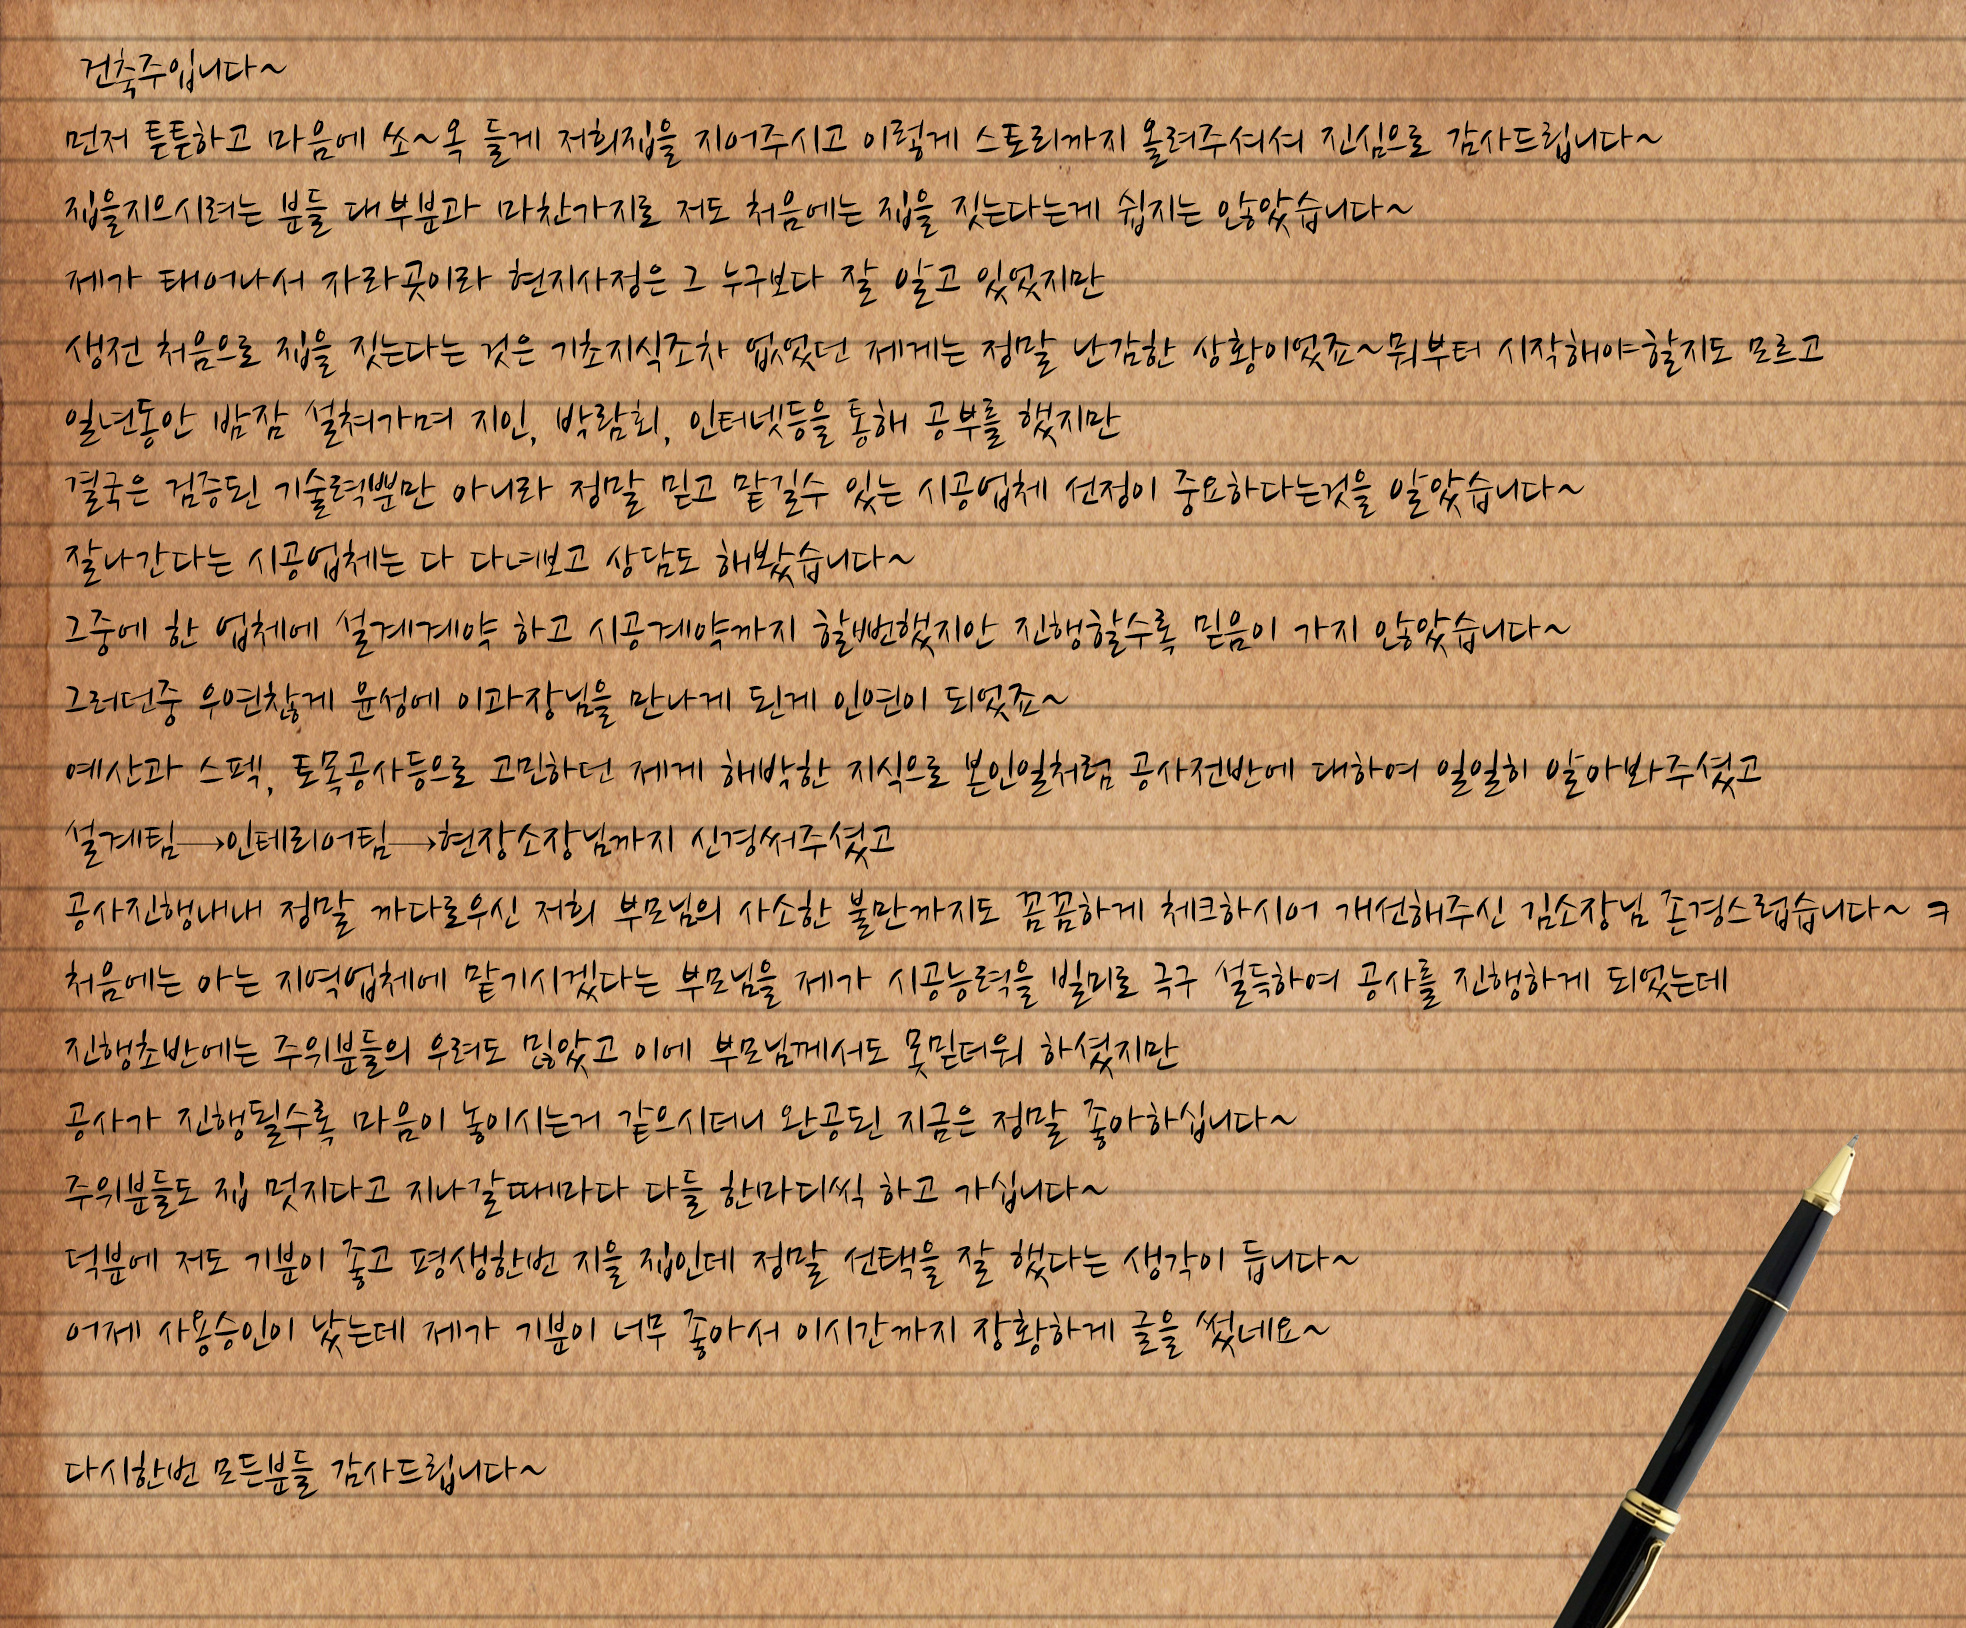 건축주입니다~
먼저 튼튼하고 마음에 쏘~옥 들게 저희집을 지어주시고 이렇게 스토리까지 올려주셔셔 진심으로 감사드립니다~
집을지으시려는 분들 대부분과 마찬가지로 저도 처음에는 집을 짓는다는게 쉽지는 않았습니다~
제가 태어나서 자라곳이라 현지사정은 그 누구보다 잘 알고 있었지만
생전 처음으로 집을 짓는다는 것은 기초지식조차 없었던 제게는 정말 난감한 상황이었죠~뭐부터 시작해야할지도 모르고
일년동안 밤잠 설쳐가며 지인, 박람회, 인터넷등을 통해 공부를 했지만
결국은 검증된 기술력뿐만 아니라 정말 믿고 맡길수 있는 시공업체 선정이 중요하다는것을 알았습니다~
잘나간다는 시공업체는 다 다녀보고 상담도 해봤습니다~
그중에 한 업체에 설계계약 하고 시공계약까지 할뻔했지안 진행할수록 믿음이 가지 않았습니다~
그러던중 우연찮게 윤성에 이과장님을 만나게 된게 인연이 되었죠~
예산과 스펙, 토목공사등으로 고민하던 제게 해박한 지식으로 본인일처럼 공사전반에 대하여 일일히 알아봐주셨고
설계팀→인테리어팀→현장소장님까지 신경써주셨고
공사진행내내 정말 까다로우신 저희 부모님의 사소한 불만까지도 꼼꼼하게 체크하시어 개선해주신 김소장님 존경스럽습니다~ ㅋ
처음에는 아는 지역업체에 맡기시겠다는 부모님을 제가 시공능력을 빌미로 극구 설득하여 공사를 진행하게 되었는데
진행초반에는 주위분들의 우려도 많았고 이에 부모님께서도 못믿더워 하셨지만
공사가 진행될수록 마음이 놓이시는거 같으시더니 완공된 지금은 정말 좋아하십니다~
주위분들도 집 멋지다고 지나갈때마다 다들 한마디씩 하고 가십니다~
덕분에 저도 기분이 좋고 평생한번 지을 집인데 정말 선택을 잘 했다는 생각이 듭니다~
어제 사용승인이 났는데 제가 기분이 너무 좋아서 이시간까지 장황하게 글을 썼네요~
다시한번 모든분들 감사드립니다~